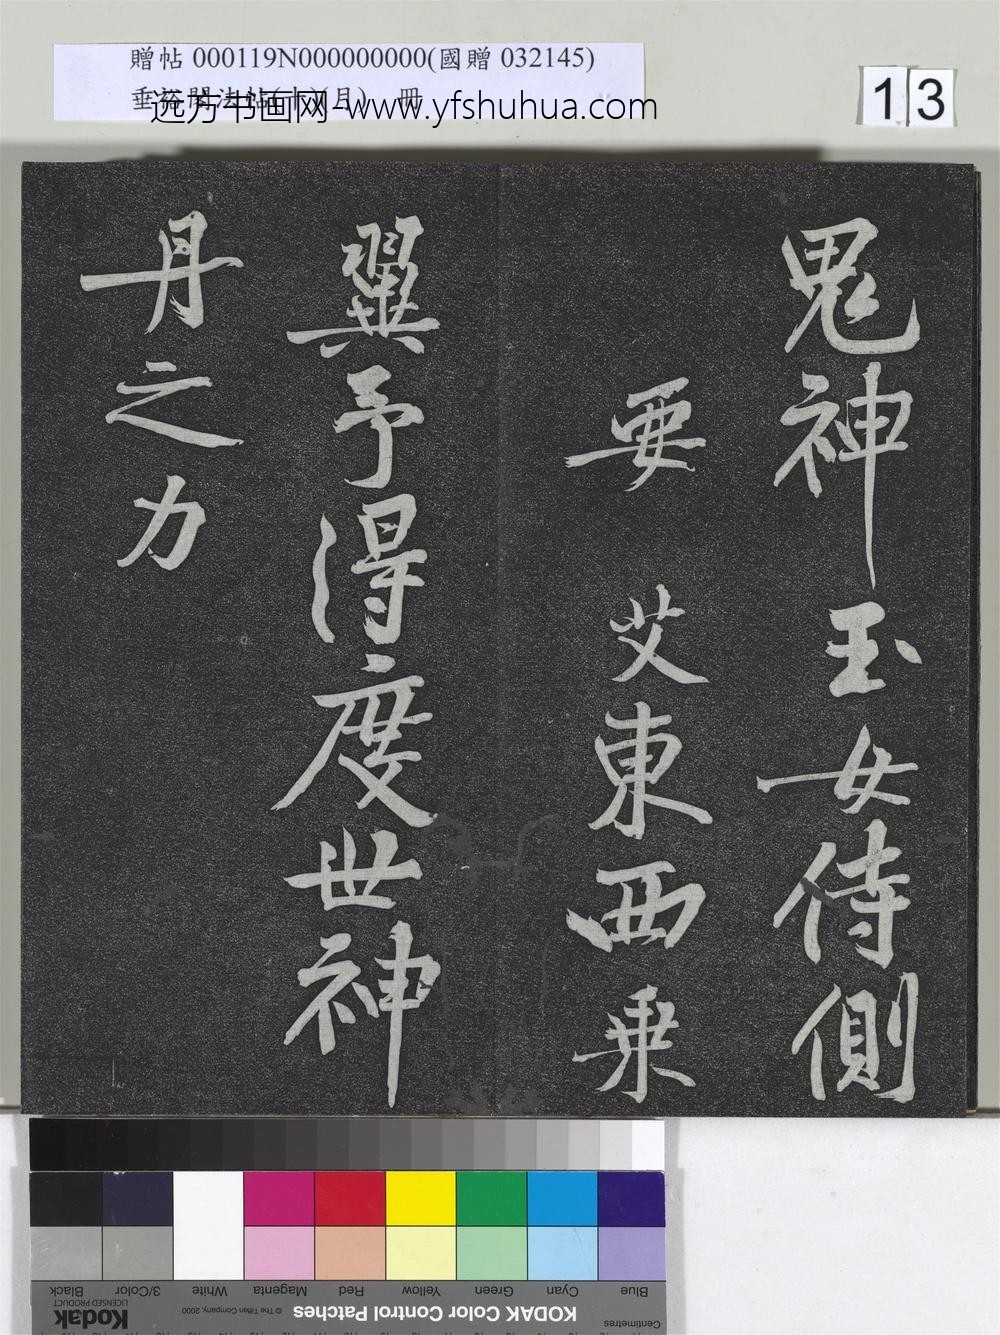 贈帖 000119N000000000(國贈 032145)
远方书画网-www.yfshuhua.com
13
鬼神玉女侍側
要 艾東西乗
翼予得度世神
丹之力
Blue Cyan Green Yellow Red Magenta White 3/Color Black
Centimetres
KODAK Color Control Patches © The Tiffen Company, 2000 Kodak
LICENSED PRODUCT